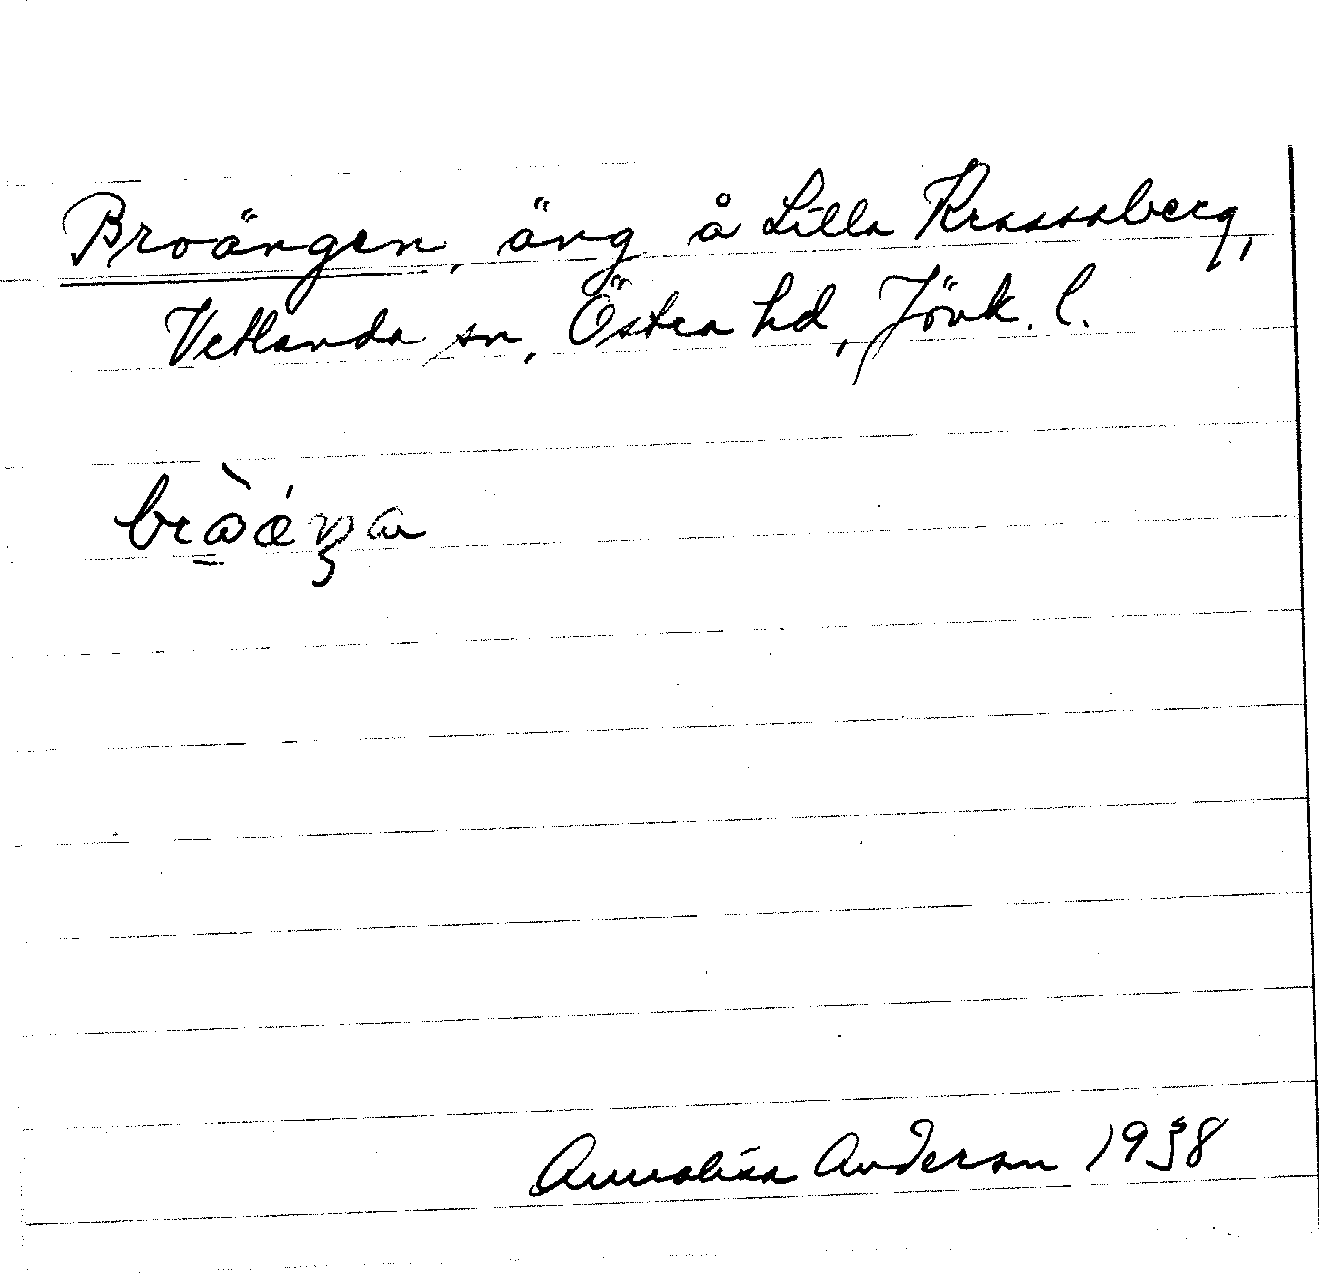 Broängen, äng å Lilla Krassaberg,
Vetlanda sn, Östra hd, Jönk. l.
Annalisa Anderson 1938